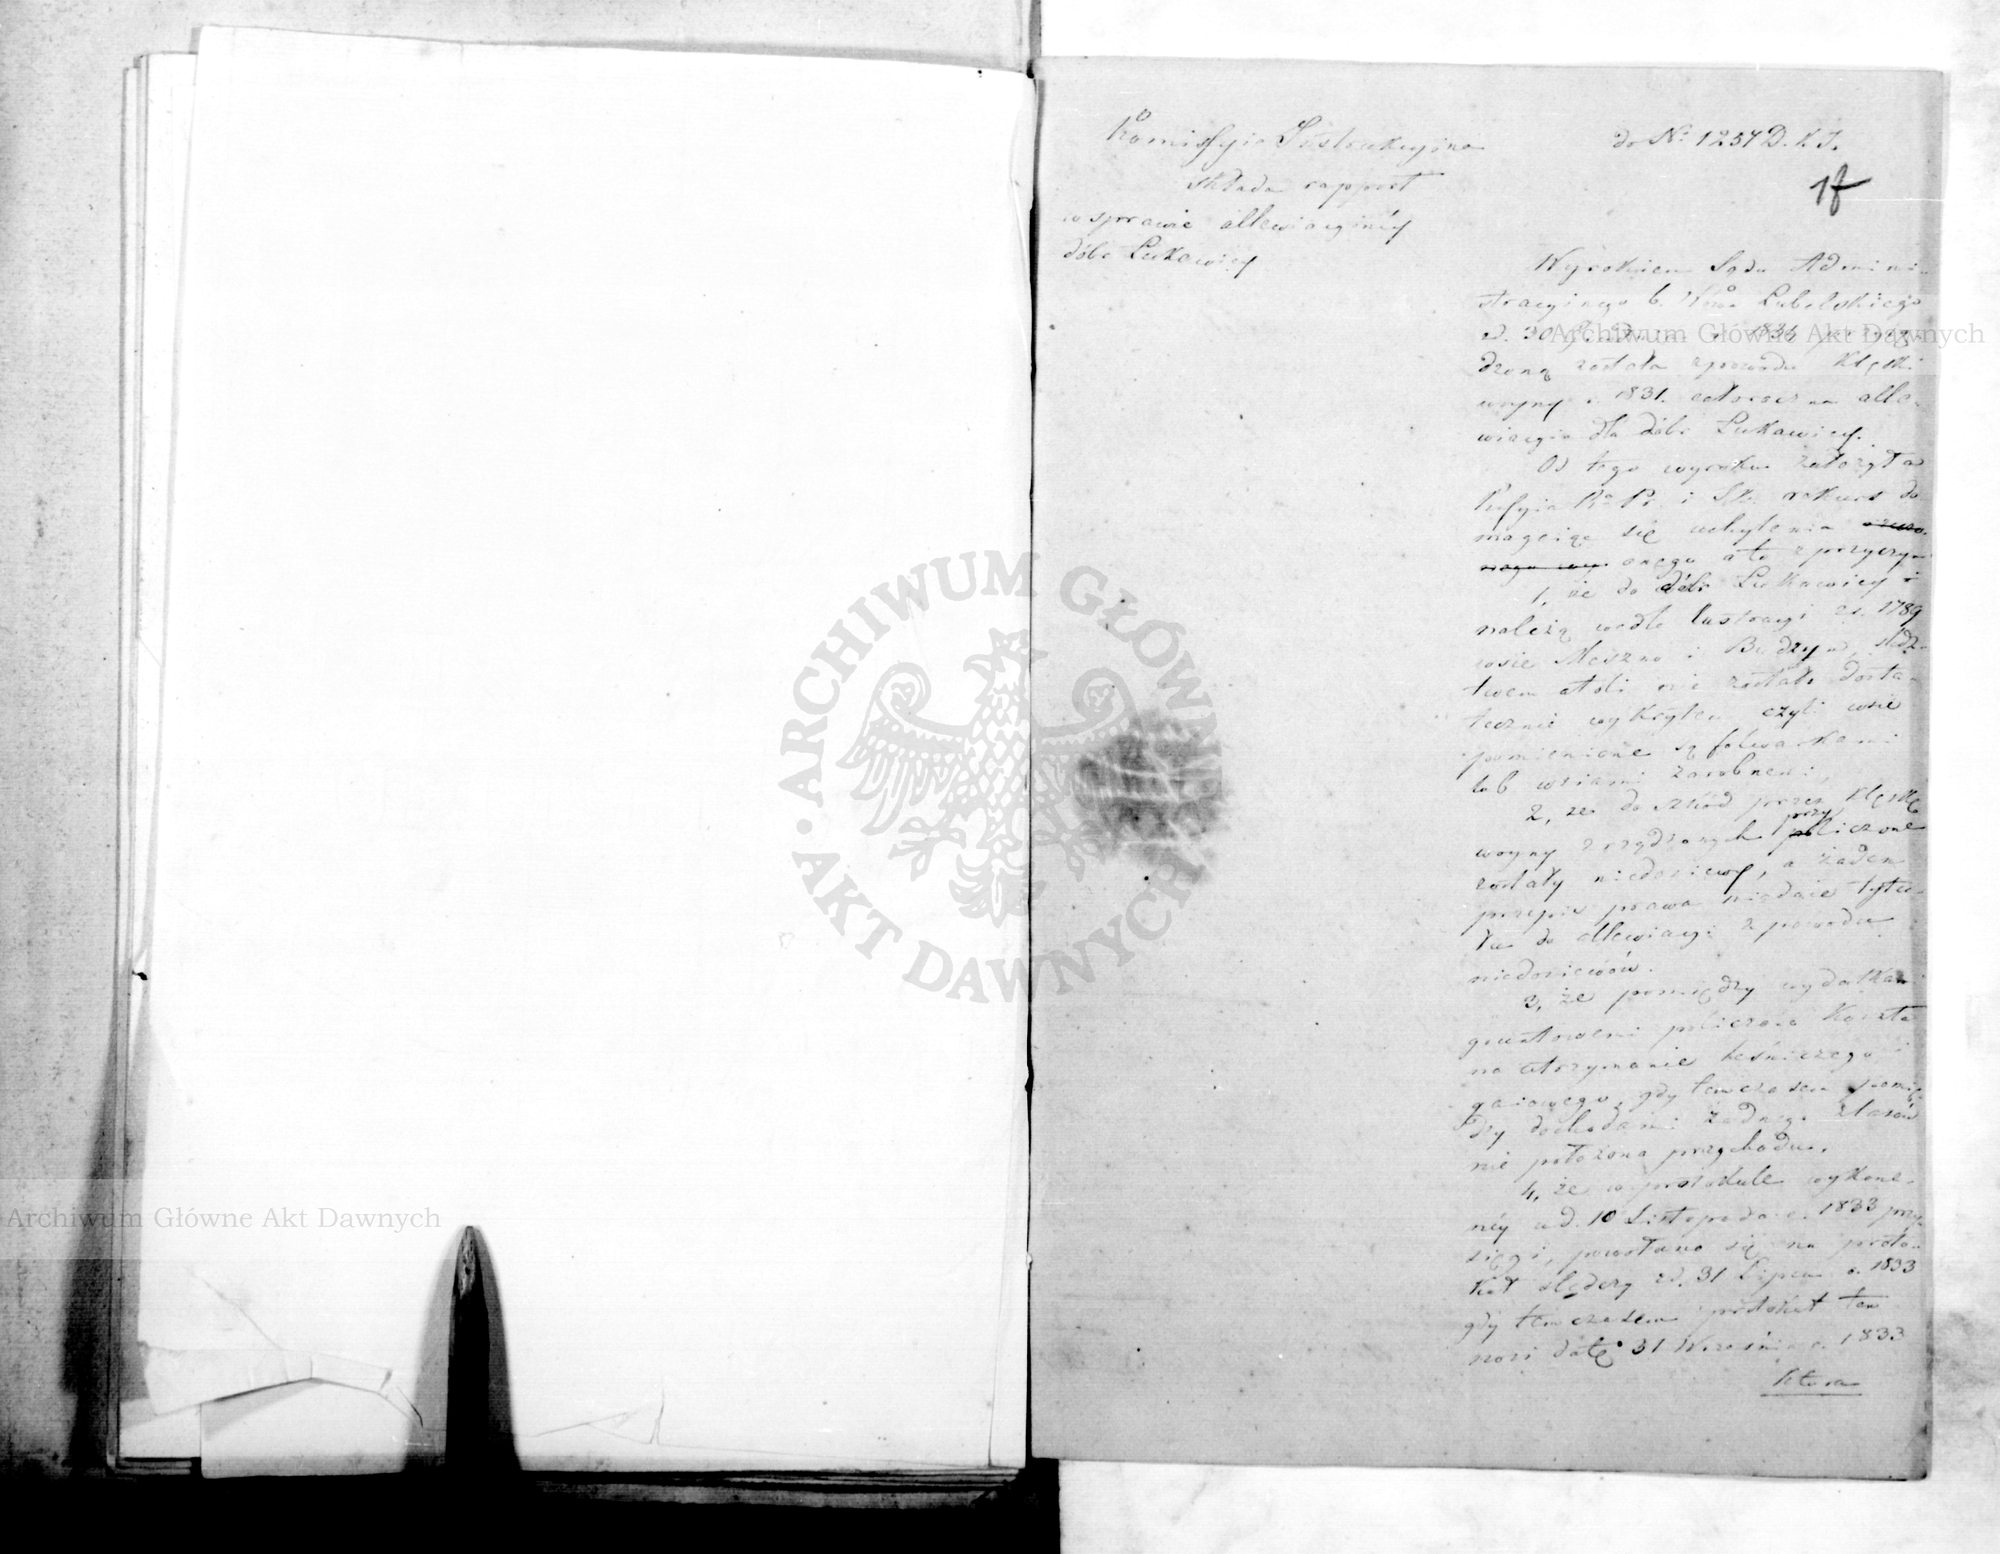 Komissyia Instrukcyina
składa rapport
w sprawie allewiacyinéy
dóbr Łukawicy
do No 1257 D. K. I.
17
Wyrokiem Sądu Admini-
stracyinego b. Wwa Lubelskiego
z d. 30 1834 przyzną-
dzoną została z powodu klęski
woyny r. 1831. całoroczna alle-
wiacyia dla dóbr Łukawicy.
Od tego wyroku założyła
Kssyia R. P. i Sk. rekurs do
magaiąc się uchylenia
onego a to z przyczyn
1, że do dóbr Łukawicy
należą wedle lustracyi z r. 1789
wsie Meszno i Budzyn, śledz-
twem atoli nie zostało dosta-
tecznie wykryte czyli wsie
pomienione są folwarkami
lub wsiami zarobnemi,
2, że do szkód przez klęskę
woyny zrządzonych przyliczone
zostały niedosiewy, a żaden
przepis prawa niedaie tytu-
łu do allewiacyi z powodu
niedosiewów.
3, że pomiędzy wydatkami
gruntowemi policzono koszta
na utrzymanie leśniczego i
gaiowego, gdy tymczasem pomię-
dzy dochodami żadnego z lasów
nie położono przychodu.
4, że w protokule wykona-
néy w d. 10 Listopada r. 1833 przy-
sięgi, powołano się na proto-
kuł śledczy z d. 31 Lipca r. 1833
gdy tymczasem protokuł ten
nosi datę 31 Września r. 1833
która
Archiwum Główne Akt Dawnych
Archiwum Główne Akt Dawnych
ARCHIWUM GŁÓWNE
AKT DAWNYCH